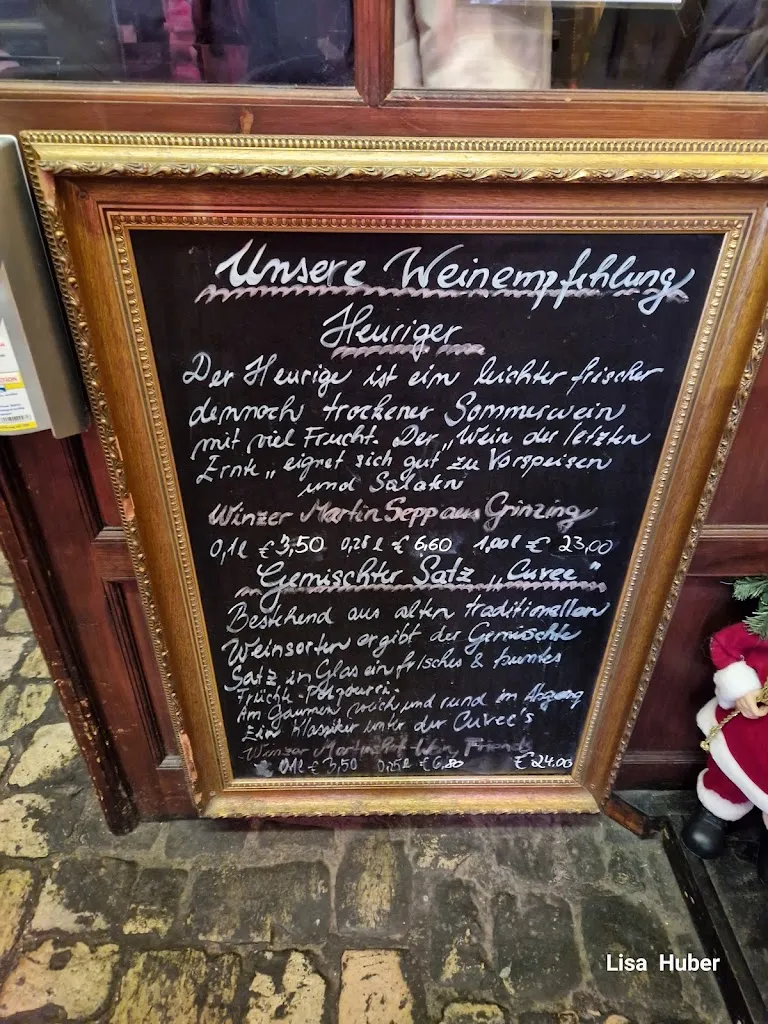 Unsere Weinempfehlung
Heuriger
Der Heurige ist ein leichter frischer
dennoch trockener Sommerwein
mit viel Frucht. Der „Wein der letzten
Ernte„ eignet sich gut zu Vorspeisen
und Salaten
Winzer Martin Sepp aus Grinzing
0,1l € 3,50 0,25l € 6,60 1,00l € 23,00
Gemischter Satz „Cuvee"
Bestehend aus alten traditionellen
Weinsorten ergibt der Gemischte
Satz in Glas ein frisches & buntes
Früchte-Potpourri.
Am Gaumen weich und rund im Abgang
Ein Klassiker unter den Cuvee's
Winzer
0,1l € 3,50 0,25l € 6,80 € 24,00
Lisa Huber